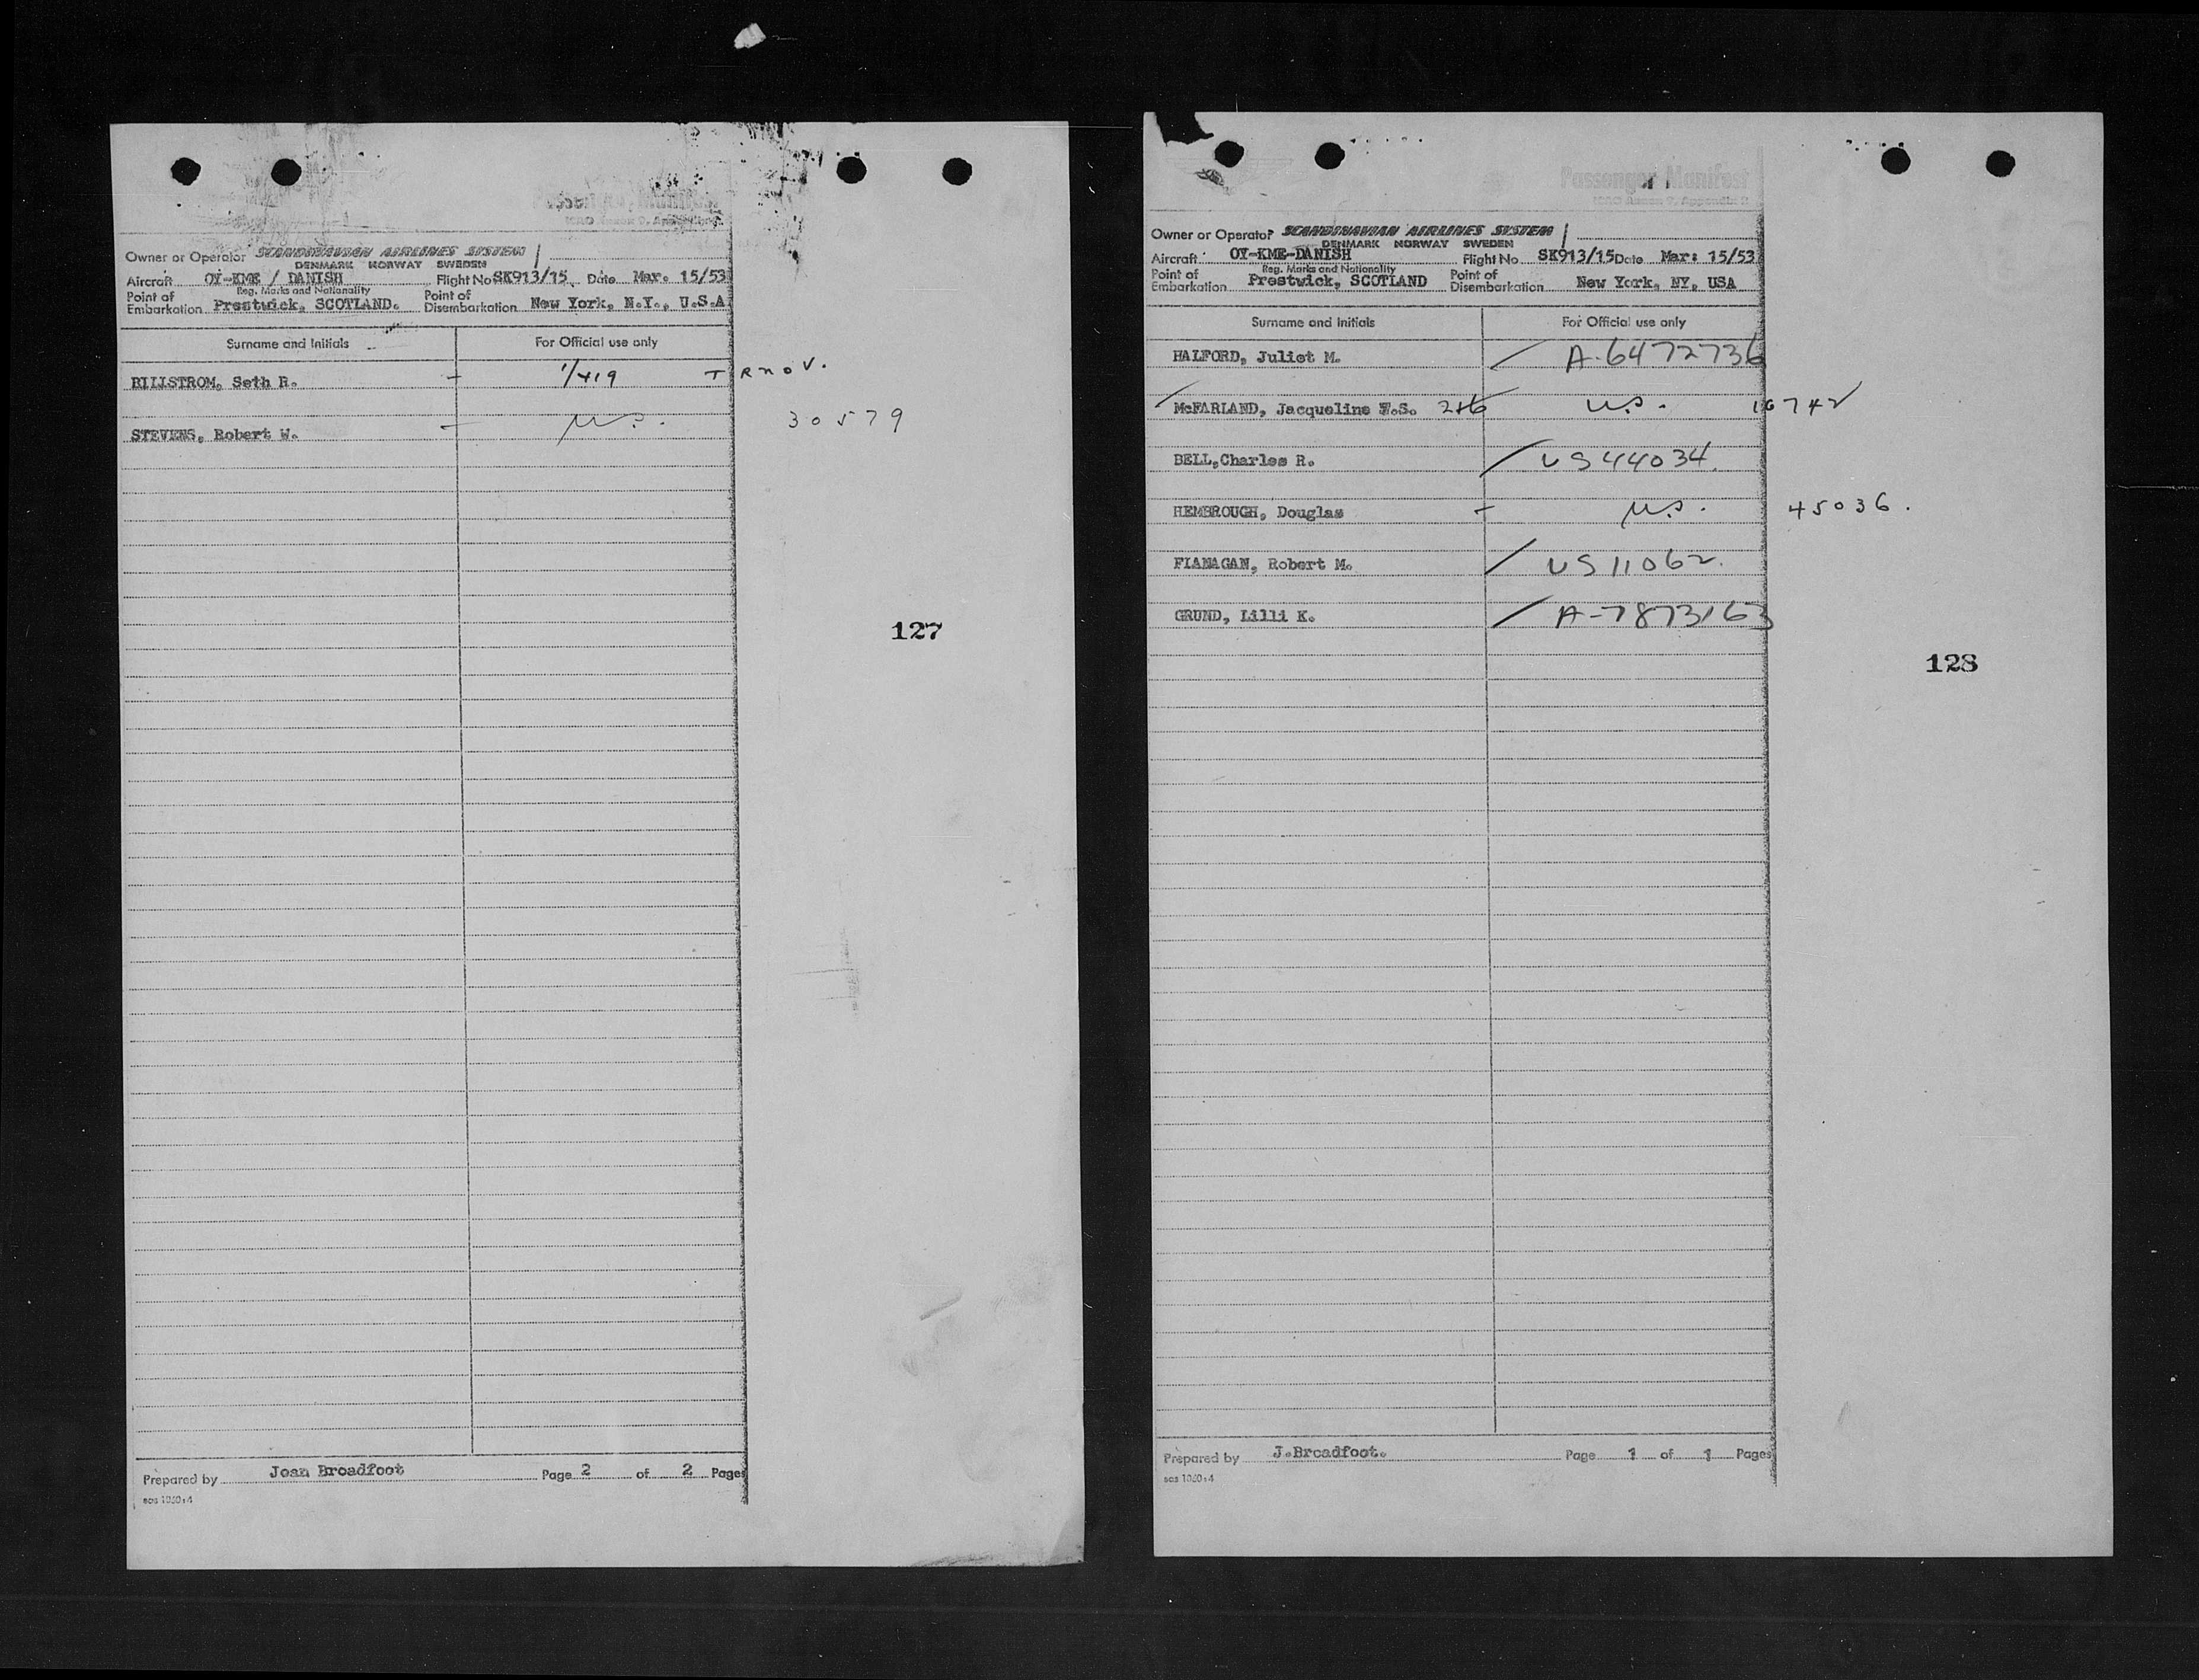 Passenger Manifest
ICAO Annex 9, Appendix
Owner or Operator SCANDINAVIAN AIRLINES SYSTEM
DENMARK NORWAY SWEDEN
Aircraft OY-KME / DANISH Flight No SK913/15. Date Mar. 15/53
Reg. Marks and Nationality
Point of Embarkation Prestwick, SCOTLAND. Point of Disembarkation New York, N.Y., U.S.A
Surname and Initials For Official use only
BILLSTROM, Seth R. 1/419 T R NOV.
STEVENS, Robert W. U.S. 30579
127
Prepared by Joan Broadfoot Page 2 of 2 Pages
sas 1060:4
Passenger Manifest
ICAO Annex 9, Appendix
Owner or Operator SCANDINAVIAN AIRLINES SYSTEM
DENMARK NORWAY SWEDEN
Aircraft OY-KME-DANISH Flight No SK913/15 Date Mar: 15/53
Reg. Marks and Nationality
Point of Embarkation Prestwick, SCOTLAND Point of Disembarkation New York, NY, USA
Surname and Initials For Official use only
HALFORD, Juliet M. A-6472736
McFARLAND, Jacqueline F.S. 216 U.S. 10742
BELL,Charles R. US 44034.
HEMBROUGH, Douglas U.S. 45036.
FLANAGAN, Robert M. US 11062.
GRUND, Lilli K. A-7873163
128
Prepared by J.Broadfoot. Page 1 of 1 Pages
sas 1060:4